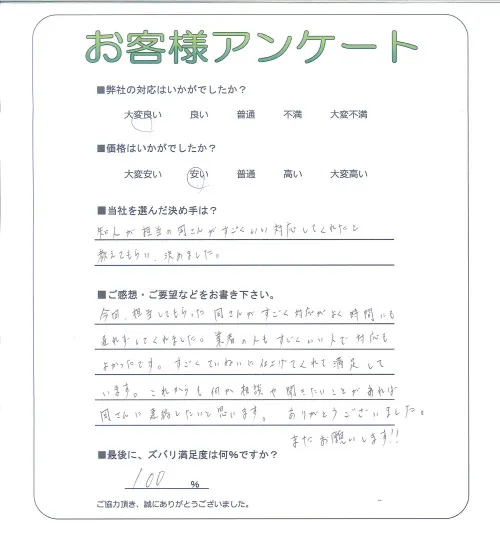 お客様アンケート
■弊社の対応はいかがでしたか？
大変良い 良い 普通 不満 大変不満
■価格はいかがでしたか？
大変安い 安い 普通 高い 大変高い
■当社を選んだ決め手は？
知人が担当の岡さんがすごくいい対応してくれたと
教えてもらい、決めました。
■ご感想・ご要望などをお書き下さい。
今回、担当してもらった岡さんがすごく対応がよく時間にも
遅れずしてくれました。業者の人もすごくいい人で対応も
よかったです。すごくていねいに仕上げてくれて満足して
います。これからも何か相談や聞きたいことがあれば
岡さんに連絡したいと思います。ありがとうございました。
またお願いします!!
■最後に、ズバリ満足度は何%ですか？
100 %
ご協力頂き、誠にありがとうございました。